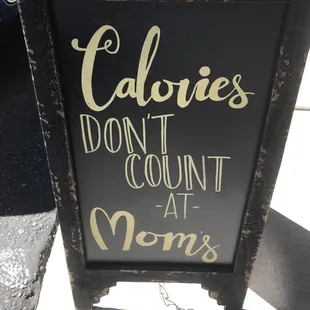 Calories
DON'T
COUNT
-AT-
Mom's